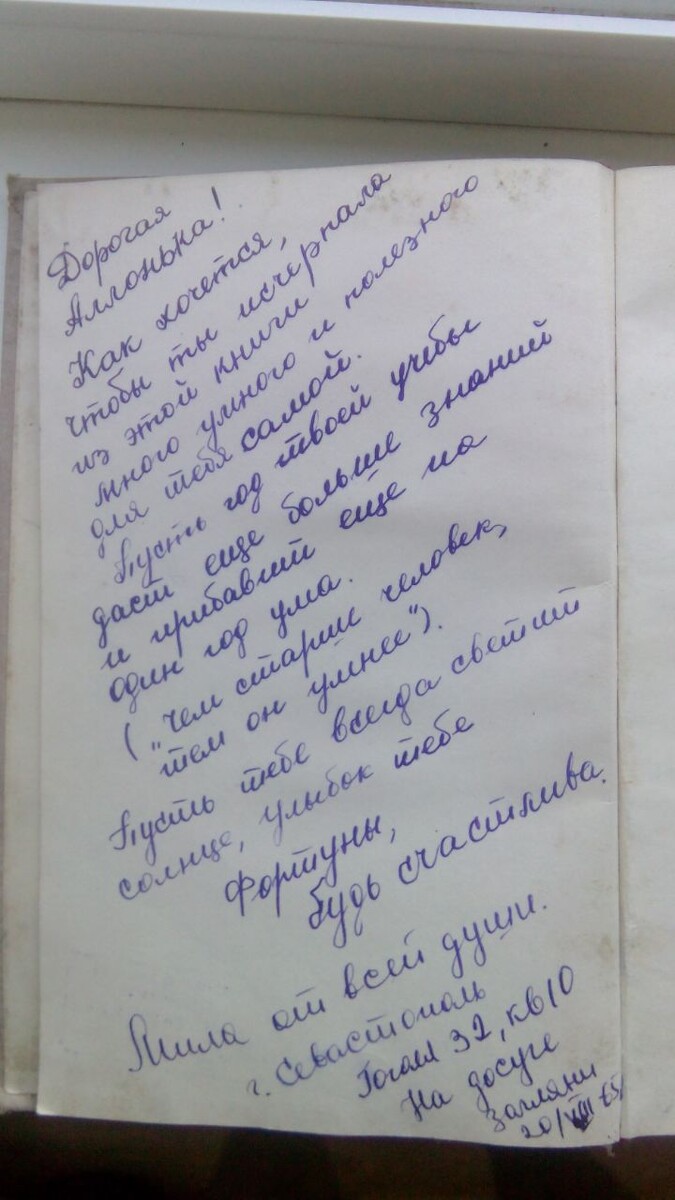 Дорогая
Аллонька!
Как хочется,
чтобы ты исчерпала
из этой книги
много умного и полезного
для тебя самой.
Пусть год твоей учебы
даст еще больше знаний
и прибавит еще на
один год ума.
("чем старше человек,
тем он умнее").
Пусть тебе всегда светит
солнце, улыбок тебе
Фортуны,
будь счастлива.
Мила от всей души.
г. Севастополь
Гоголя 32, кв 10
На досуге
загляни
20/VIII 65